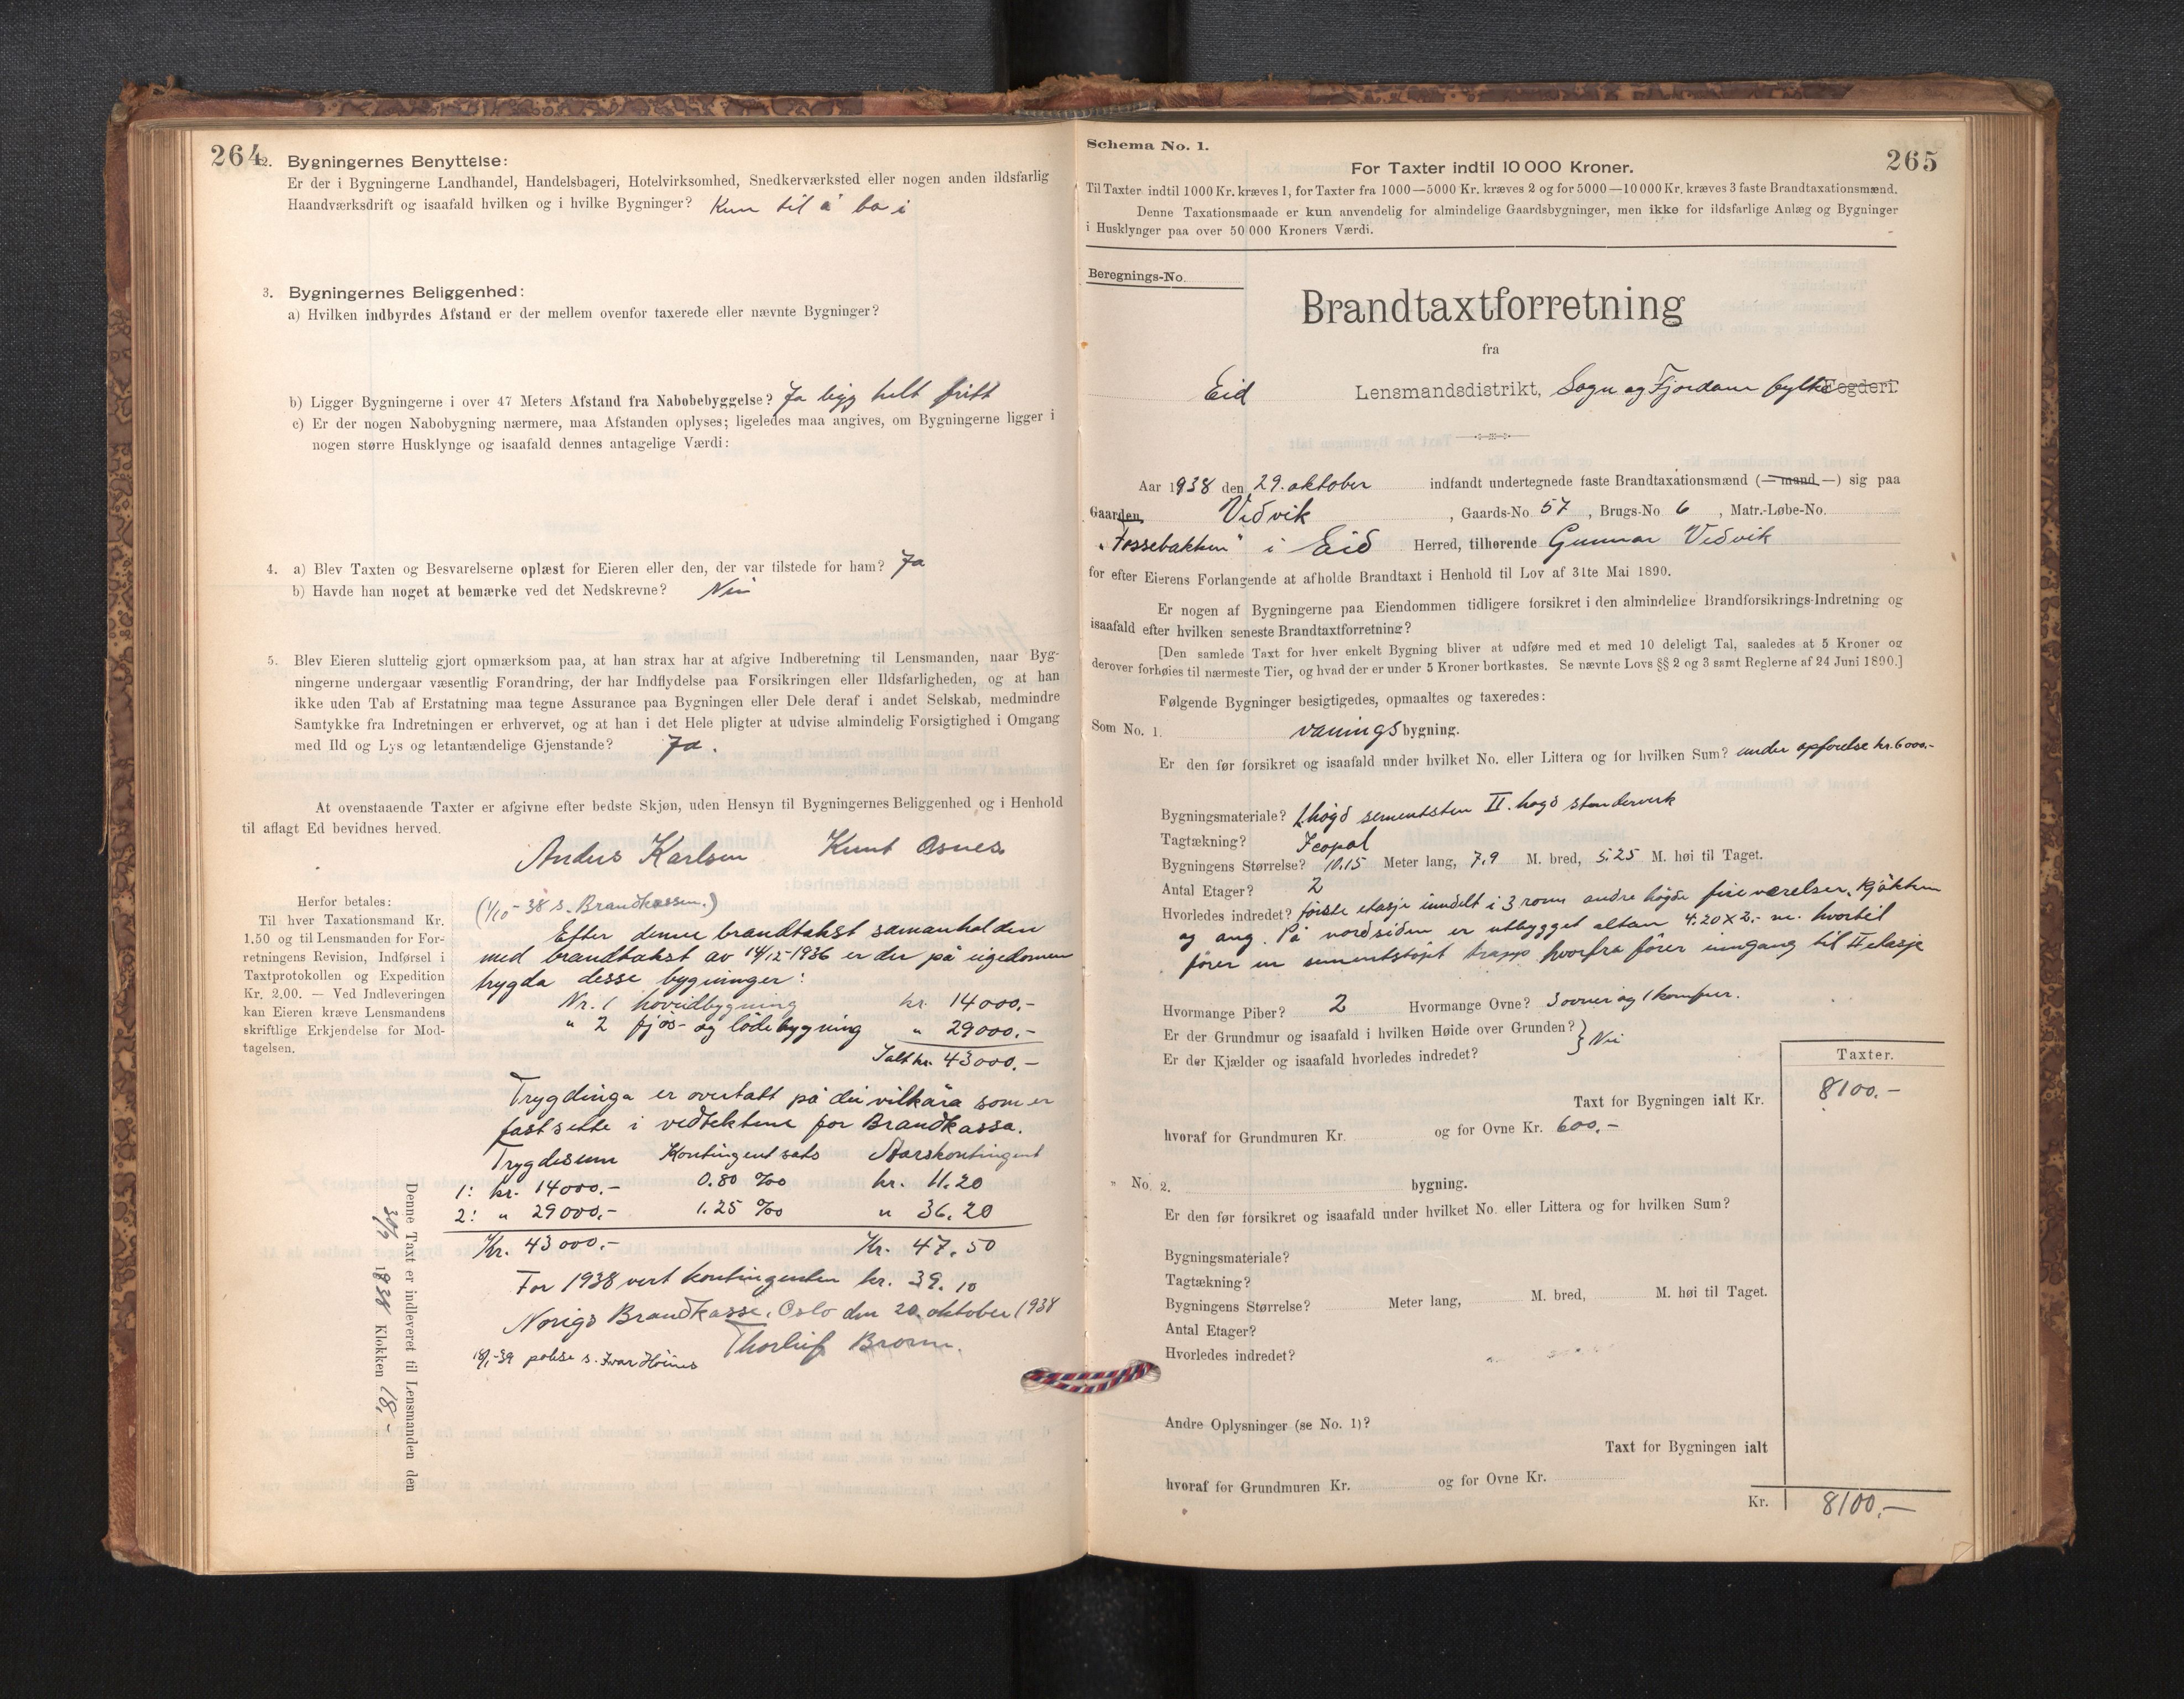 264
2. Bygningernes Benyttelse:
Er der i Bygningerne Landhandel, Handelsbageri, Hotelvirksomhed, Snedkerværksted eller nogen anden ildsfarlig
Haandværksdrift og isaafald hvilken og i hvilke Bygninger? Kun til å bo i
3. Bygningernes Beliggenhed:
a) Hvilken indbyrdes Afstand er der mellem ovenfor taxerede eller nævnte Bygninger?
b) Ligger Bygningerne i over 47 Meters Afstand fra Nabobebyggelse? Ja ligg helt fritt
c) Er der nogen Nabobygning nærmere, maa Afstanden oplyses; ligeledes maa angives, om Bygningerne ligger i
nogen større Husklynge og isaafald dennes antagelige Værdi:
4. a) Blev Taxten og Besvarelserne oplæst for Eieren eller den, der var tilstede for ham? Ja
b) Havde han noget at bemærke ved det Nedskrevne? Nei
5. Blev Eieren sluttelig gjort opmærksom paa, at han strax har at afgive Indberetning til Lensmanden, naar Byg-
ningerne undergaar væsentlig Forandring, der har Indflydelse paa Forsikringen eller Ildsfarligheden, og at han
ikke uden Tab af Erstatning maa tegne Assurance paa Bygningen eller Dele deraf i andet Selskab, medmindre
Samtykke fra Indretningen er erhvervet, og at han i det Hele pligter at udvise almindelig Forsigtighed i Omgang
med Ild og Lys og letantændelige Gjenstande? Ja.
At ovenstaaende Taxter er afgivne efter bedste Skjøn, uden Hensyn til Bygningernes Beliggenhed og i Henhold
til aflagt Ed bevidnes herved.
Anders Karlsen Knut Osnes
Herfor betales:
Til hver Taxationsmand Kr.
1.50 og til Lensmanden for For-
retningens Revision, Indførsel i
Taxtprotokollen og Expedition
Kr. 2.00. — Ved Indleveringen
kan Eieren kræve Lensmandens
skriftlige Erkjendelse for Mod-
tagelsen.
(1/10-38 s. Brandkassen.)
Efter denne brandtakst samanholden
med brandtakst av 14/12-1936 er der på eigedomen
trygda desse bygninger:
Nr. 1 hovudbygning kr. 14000,-
" 2 fjøs- og lödebygning " 29000,-
Ialt kr. 43000,-
Trygdinga er overtatt på dei vilkåra som er
fastsette i vedtektene for Brandkassa.
Trygdesum Kontingentsats Aarskontingent
1: kr. 14000,- 0.80 ‰ kr. 11.20
2: " 29000,- 1.25 ‰ " 36.20
Kr. 43000,- Kr. 47.50
For 1938 vert kontingenten kr. 39.10
Norigs Brandkasse, Oslo den 20. oktober 1938
Thorleif Brorm.
18/1-39 polise s. Ivar Hoines
Denne Taxt er indleveret til Lensmanden den
30/9 1938 Klokken 18,-
265
Schema No. 1.
For Taxter indtil 10 000 Kroner.
Til Taxter indtil 1000 Kr. kræves 1, for Taxter fra 1000—5000 Kr. kræves 2 og for 5000—10 000 Kr. kræves 3 faste Brandtaxationsmænd.
Denne Taxationsmaade er kun anvendelig for almindelige Gaardsbygninger, men ikke for ildsfarlige Anlæg og Bygninger
i Husklynger paa over 50 000 Kroners Værdi.
Beregnings-No.
Brandtaxtforretning
fra
Eid Lensmandsdistrikt, Sogn og Fjordane fylke Fogderi.
Aar 1938 den 29. oktober indfandt undertegnede faste Brandtaxationsmænd (— mand —) sig paa
Gaarden Vedvik, Gaards-No 57, Brugs-No 6, Matr.-Løbe-No.
"Fossebakken" i Eid Herred, tilhørende Gunnar Vedvik
for efter Eierens Forlangende at afholde Brandtaxt i Henhold til Lov af 31te Mai 1890.
Er nogen af Bygningerne paa Eiendommen tidligere forsikret i den almindelige Brandforsikrings-Indretning og
isaafald efter hvilken seneste Brandtaxtforretning?
[Den samlede Taxt for hver enkelt Bygning bliver at udføre med et med 10 deleligt Tal, saaledes at 5 Kroner og
derover forhøies til nærmeste Tier, og hvad der er under 5 Kroner bortkastes. Se nævnte Lovs §§ 2 og 3 samt Reglerne af 24 Juni 1890.]
Følgende Bygninger besigtigedes, opmaaltes og taxeredes:
Som No. 1. vaningsbygning.
Er den før forsikret og isaafald under hvilket No. eller Littera og for hvilken Sum? under opförelse kr. 6000,-
Bygningsmateriale? I. högd sementsten II. högd stenderverk
Tagtækning? Icopal
Bygningens Størrelse? 10.15 Meter lang, 7.9 M. bred, 5.25 M. høi til Taget.
Antal Etager? 2
Hvorledes indredet? förste etasje inndelt i 3 rom andre högda fire værelser, kjökken
og gang. På nordsiden er utbygget altan 4.20 x 2,- m. hvortil
fører en sementstöpt trapp hvorfra fører inngang til II etasje
Hvormange Piber? 2 Hvormange Ovne? 3 ovner og 1 komfur.
Er der Grundmur og isaafald i hvilken Høide over Grunden? } Nei
Er der Kjælder og isaafald hvorledes indredet?
Taxter.
Taxt for Bygningen ialt Kr. 8100,-
hvoraf for Grundmuren Kr. og for Ovne Kr. 600,-
" No. 2. bygning.
Er den før forsikret og isaafald under hvilket No. eller Littera og for hvilken Sum?
Bygningsmateriale?
Tagtækning?
Bygningens Størrelse? Meter lang, M. bred, M. høi til Taget.
Antal Etager?
Hvorledes indredet?
Andre Oplysninger (se No. 1)?
Taxt for Bygningen ialt
hvoraf for Grundmuren Kr. og for Ovne Kr.
Kr. 8100,-